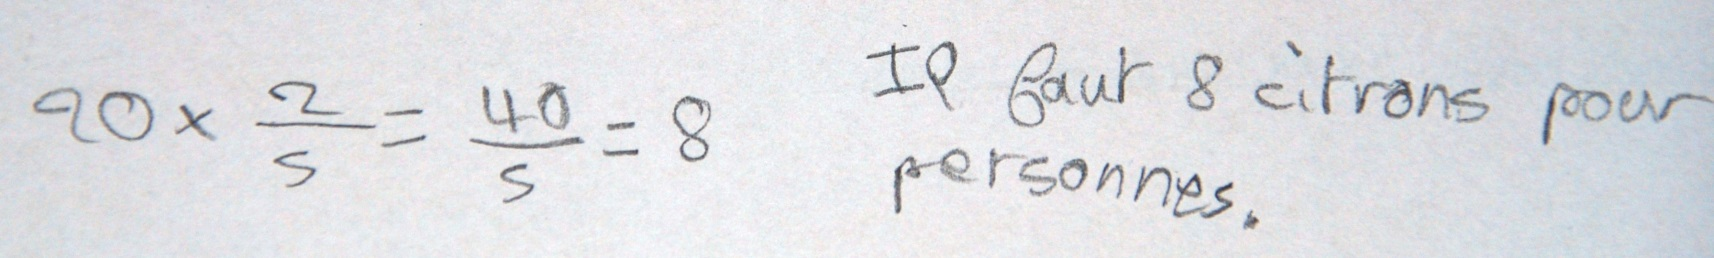 20 × 2/5 = 40/5 = 8
Il faut 8 citrons pour
personnes.